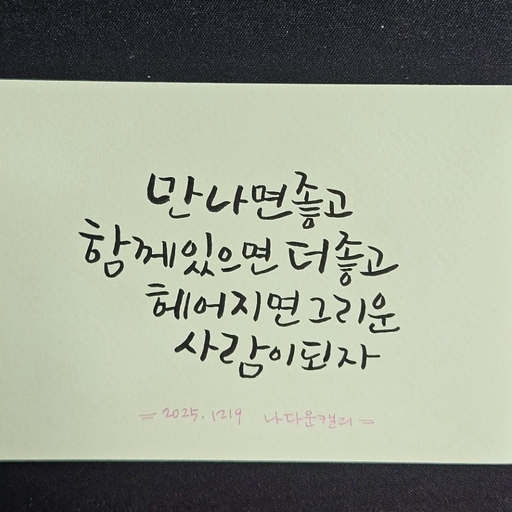 만나면좋고
함께있으면 더좋고
헤어지면그리운
사람이되자
= 2025. 1219 나다운캘리 =